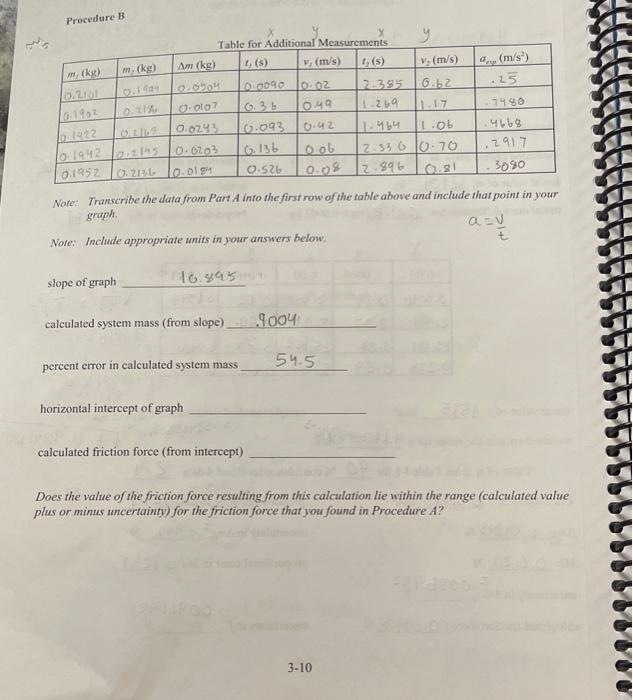 Procedure B
x y x y
Table for Additional Measurements
m₁ (kg) m₂ (kg) Δm (kg) t₁ (s) v₁ (m/s) t₂ (s) v₂ (m/s) aₑₓₚ (m/s²)
0.2101 0.0504 0.0090 0.02 2.385 0.62 .25
0.1902 0.0107 0.36 0.49 1.269 1.17 .7480
0.1922 0.2165 0.0243 0.093 0.42 1.464 1.06 .4668
0.1942 0.2145 0.0203 0.136 0.06 2.336 0.70 .2917
0.1952 0.2136 0.0184 0.526 0.08 2.896 0.81 .3080
Note: Transcribe the data from Part A into the first row of the table above and include that point in your
graph.
a = v/t
Note: Include appropriate units in your answers below.
slope of graph 16.895
calculated system mass (from slope) .9004
percent error in calculated system mass 54.5
horizontal intercept of graph
calculated friction force (from intercept)
Does the value of the friction force resulting from this calculation lie within the range (calculated value
plus or minus uncertainty) for the friction force that you found in Procedure A?
3-10